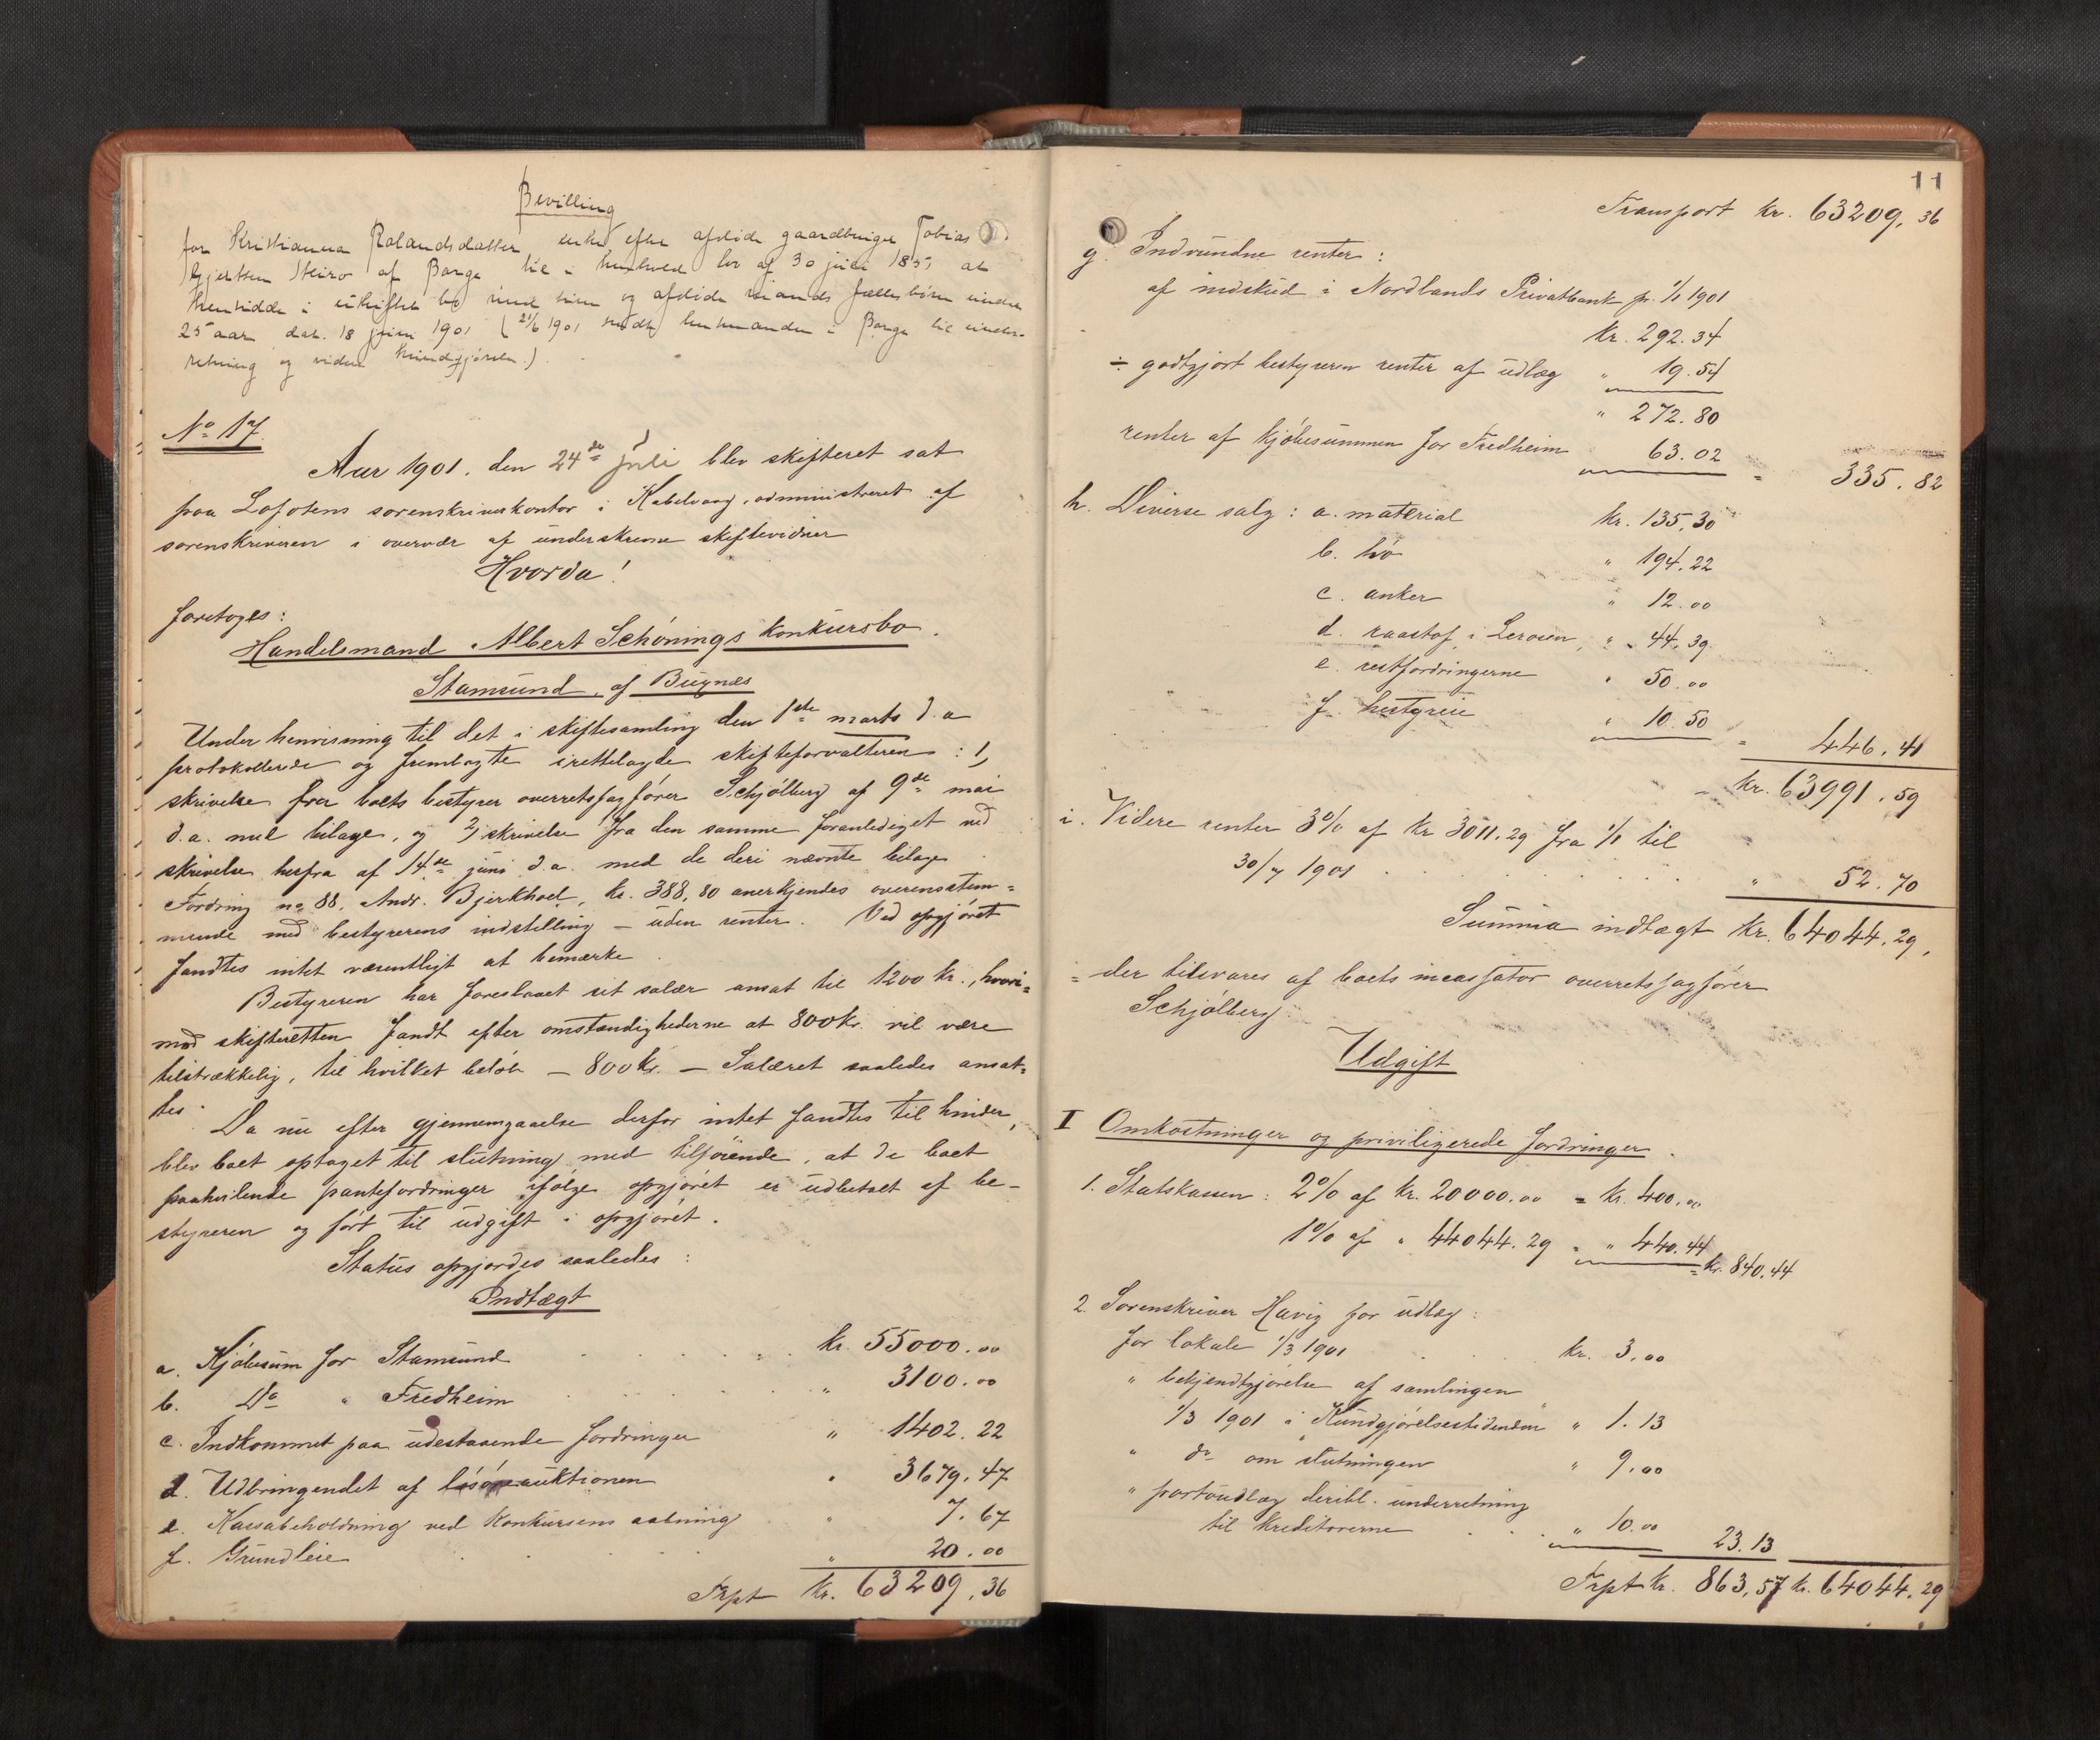 Bevilling
for Kristianna Rolandsdatter, enke efter afdøde gaardbruger Tobias
Gjertsen Steiro af Borge til i henhold lov af 30 juli 1851 at
hensidde i uskiftet bo med sine og afdøde mands fællesbørn under
25 aar dat. 18 juni 1901 (21/6 1901 sendt lensmanden i Borge til under-
retning og videre kundgjørelse.)
No 17.
Aar 1901. den 24de juli blev skifteret sat
paa Lofotens sorenskriverkontor i Kabelvaag, administreret af
sorenskriveren i overvær af underskrevne skiftevidner
Hvorda!
foretoges:
Handelsmand Albert Schønings konkursbo.
Stamsund, af Bugnæs
Under henvisning til det i skiftesamling den 1ste marts d.a
protokollerede og fremlagte irettelagde skifteforvalteren: 1,
skrivelse fra boets bestyrer overretssagfører Schjølberg af 9de mai
d.a. med bilage, og 2) skrivelse fra den samme foranlediget ved
skrivelse herfra af 14de juni d.a. med de deri nævnte bilage
Fordring no 88, Andr. Bjerkhoel, kr. 388,80 anerkjendes overensstem=
mende med bestyrerens indstilling – uden renter. Ved opgjøret
fandtes intet væsentligt at bemærke.
Bestyreren har foreslaaet sit salær ansat til 1200 kr., hvori=
mod skifteretten fandt efter omstændighederne at 800 kr. vil være
tilstrækkelig, til hvilket beløb – 800 kr. – Salæret saaledes ansat=
tes.
Da nu efter gjennemgaaelse derfor intet fandtes til hinder,
blev boet optaget til slutning med tilføiende, at de boet
paahvilende pantefordringer ifølge opgjøret er udbetalt af be-
styreren og ført til udgift i opgjøret.
Status opgjordes saaledes:
Indtægt
a. Kjøbesum for Stamsund . . . kr. 55000.00
b. Do " Fredheim . . . " 3100.00
c. Indkommet paa udestaaende fordringer " 1402.22
d. Udbringendet af løsøreauktionen " 3679.47
e. Kassabeholdning ved konkursens aabning " 7.67
f. Grundleie . . . " 20.00
Trpt kr. 63209,36
11
Transport kr. 63209,36
g. Indvundne renter:
af indskud i Nordlands Privatbank pr. 1/1 1901
kr. 292.34
÷ godtgjort bestyreren renter af udlæg " 19.54
" 272.80
renter af kjøbesummen for Fredheim 63.02 = 335.82
h. Diverse salg: a. material kr. 135,30
b. hø " 194.22
c. anker " 12.00
d. raastof i Lerosen, " 44,39
e. restfordringerne " 50.00
f. hestgreie " 10.50 = 446.41
kr. 63991.59
i. Videre renter 3% af kr 3011.29 fra 1/1 til
30/7 1901 . . . " 52.70
Summa indtægt kr. 64044.29,
= der tilsvares af boets incassator overretssagfører
Schjølberg.
Udgift
I Omkostninger og priviligerede fordringer.
1. Statskassen: 2% af kr. 20000.00 = kr. 400.00
1% af " 44044.29 = " 440.44
= kr. 840.44
2. Sorenskriver Havig for udlæg:
for lokale 1/3 1901 . . kr. 3.00
" bekjendtgjørelse af samlingen
1/3 1901 i "Kundgjørelsestidenden" " 1.13
" do om slutningen " 9.00
" portoudlæg deribl. underretning
til kreditorerne . . . " 10.00 23.13
Trpt kr. 863,57 kr. 64044.29